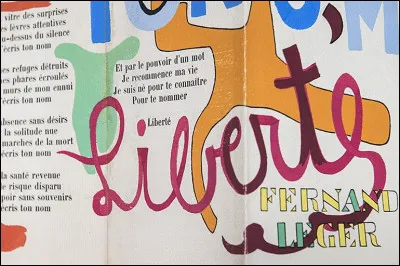 vitre des surprises
es lèvres attentives
u-dessus du silence
écris ton nom
es refuges détruits
es phares écroulés
murs de mon ennui
écris ton nom
absence sans désirs
la solitude nue
marches de la mort
écris ton nom
la santé revenue
e risque disparu
poir sans souvenirs
écris ton nom
Et par le pouvoir d'un mot
Je recommence ma vie
Je suis né pour te connaître
Pour te nommer
Liberté
Liberté
FERNAND
LEGER